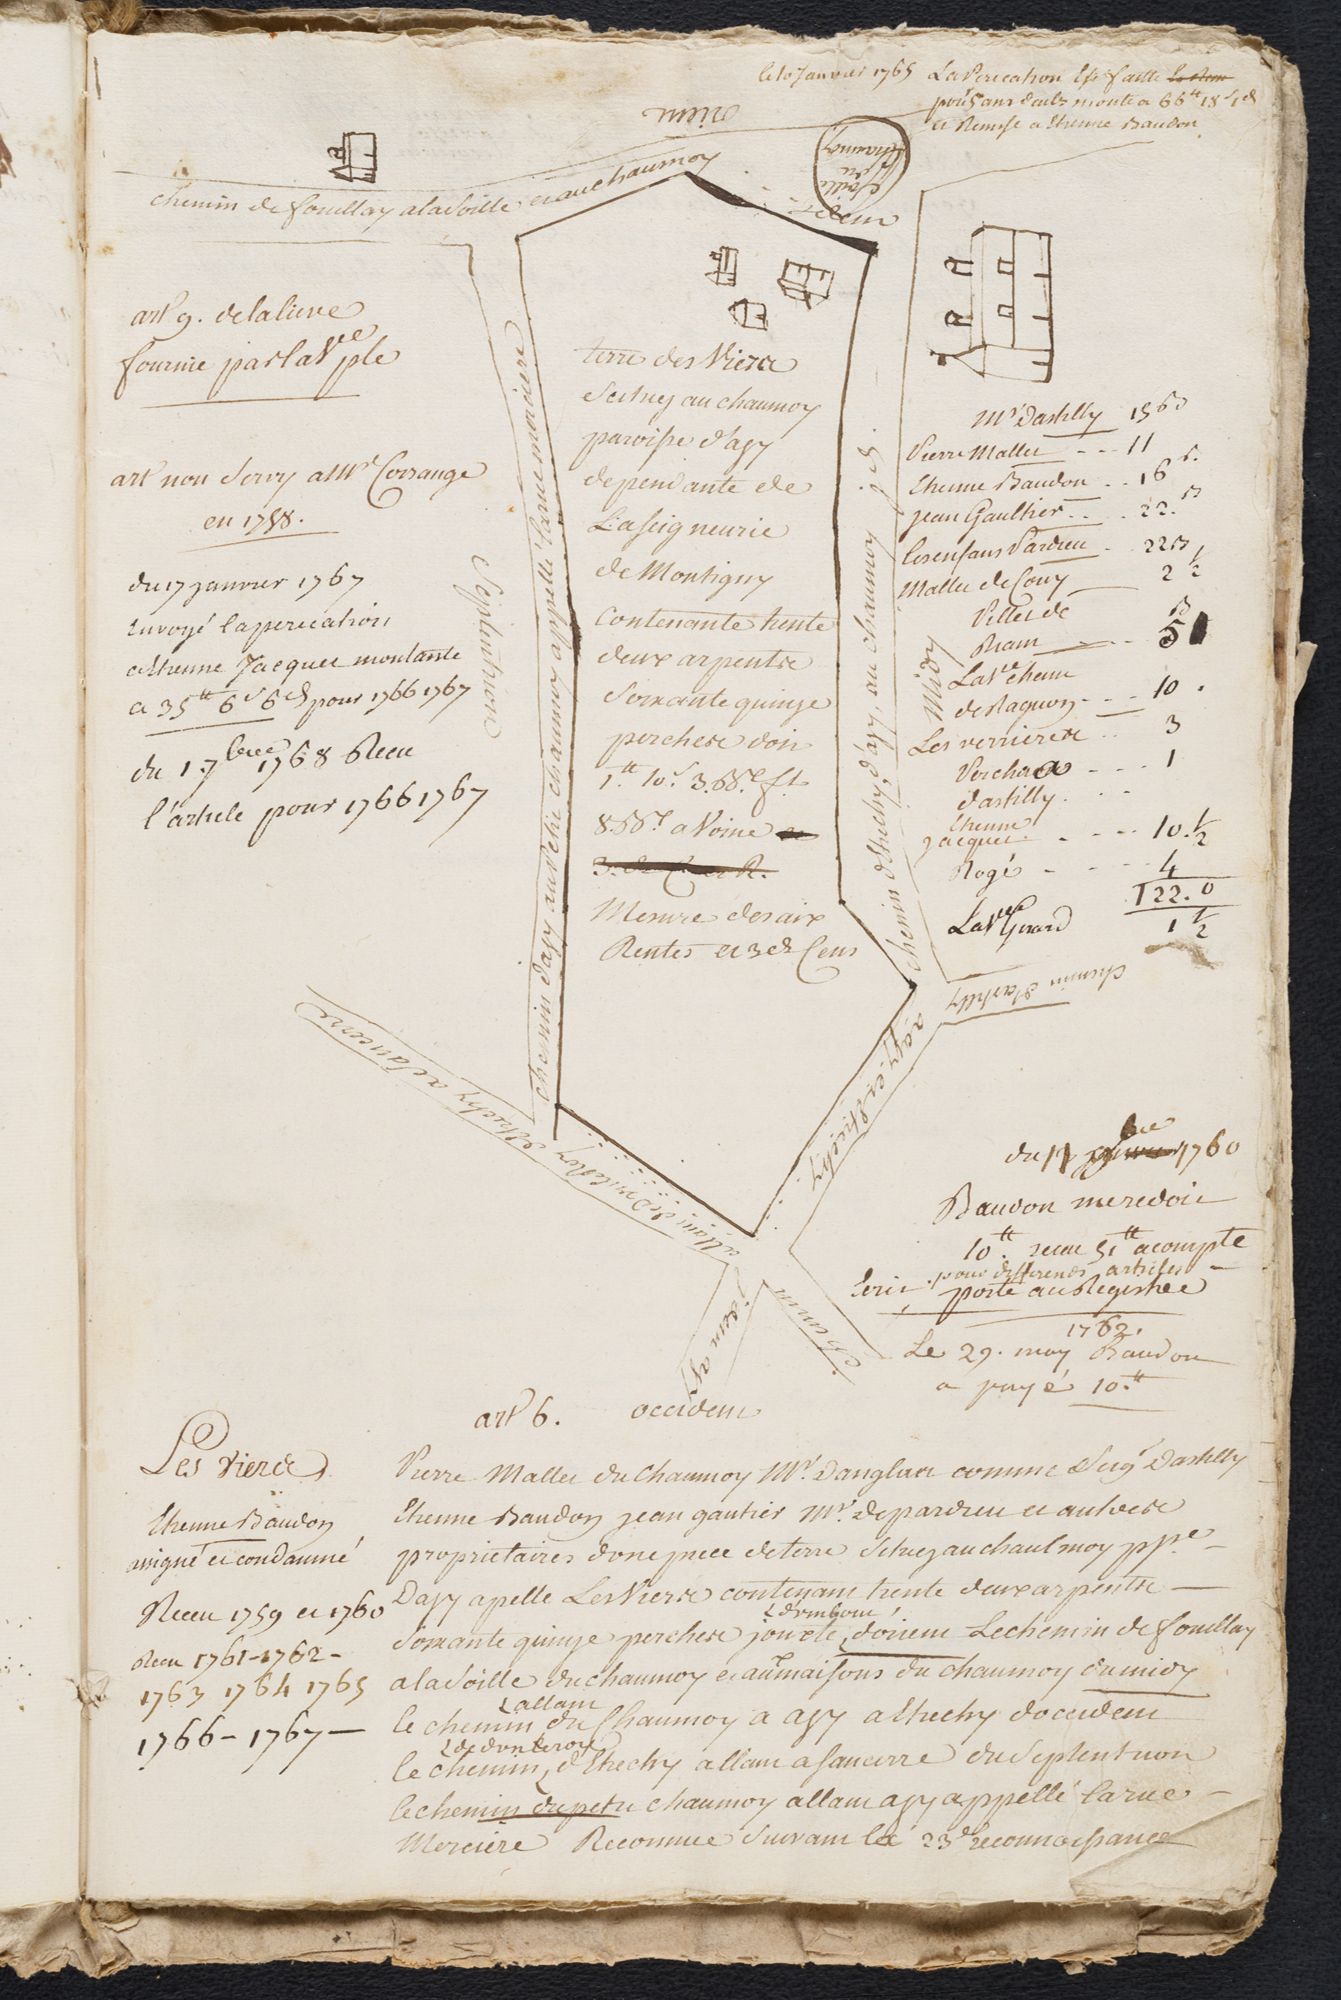 le 10 Janvier 1765 La Perecation Est faitte
pour 5 ans d'eulx monte a 66tt 18s 1d
et Remise a Etienne Baudon
orient
chemin de fouillay a la voille et au chaumoy
voille du chaumoy
idem
artl 9. de la lieve
fournie par la Vve ple
artl non Servy a Mr Corrange
en 1758.
du 17 janvier 1767
Envoyé la perecation
a Etienne Jacquet montante
a 35tt 6s 6d pour 1766 1767
du 1. 7bre 1768 Receu
l'article pour 1766 1767
Septentrion
chemin d'asy au petit chaumoy appellé la rue merciere
terre des Vierse
Scituez au chaumoy
paroisse d'asy
dependante de
La seigneurie
de Montigny
Contenante trente
deux arpentse
Soixante quinze
perchese doit
1tt 10s 3.bb. ft
8.bbx avoine et
Mesure desaix
Rentes et 3d Cens
chemin d'Etrechy, d'asy, au chaumoy
Midy
Mr Dastilly 15 bd
Pierre Mallet - - - 11
Etienne Baudon . . 16 b.
jean Gaultier . . . 22. b
les enfans Pardieu . 22 b
Mallet de Couy 2 1/2
Villes de
Riam 5
La Ve theme
de Raquon - - - 10 .
Les verrierese . . 3
Perchose - - - 1
dastilly . - -
Etienne
jacquet . . - - - 10. 1/2
Rogé - - - 4
122. 0
La Vve Girard 1 1/2
chemin d'astilly
asy et Etrechy
allant de villeroy Etrechy a Sancerre
idem asy
chemin
du 11 1760
Baudon me redoit
10tt receu 51tt acompte
pour differends articles
Ecrit, porté au Registree
1762.
Le 29. may Baudon
a payé 10.tt
artl 6. occident
Les vierse
Etienne Baudon
assigné et condamné
Receu 1759 et 1760
Receu 1761-1762-
1763 1764 1765
1766-1767-
Pierre Mallet du Chaumoy Mr. Danglart comme Seigr Dastilly
Etienne Baudon jean gautier Mr. de pardieu et autrese
proprietaires d'une piece de terre Scituez au chaulmoy ppse
D'asy apelle Les Vierse contenant trente deux arpentse
d'un bout
Soixante quinze perchese jouxte, d'orient Le chemin de fouillay
a la voille du chaumoy et aux maisons du chaumoy du midy
allant
le chemin du Chaumoy a asy a Etrechy d'occident
de dun le roy
le chemin, d'Etrechy allant a sancerre du Septentrion
le chemin du petit chaumoy allant a asy appellé la rue
Merciere Reconnue Suivant la 23e reconnoissance